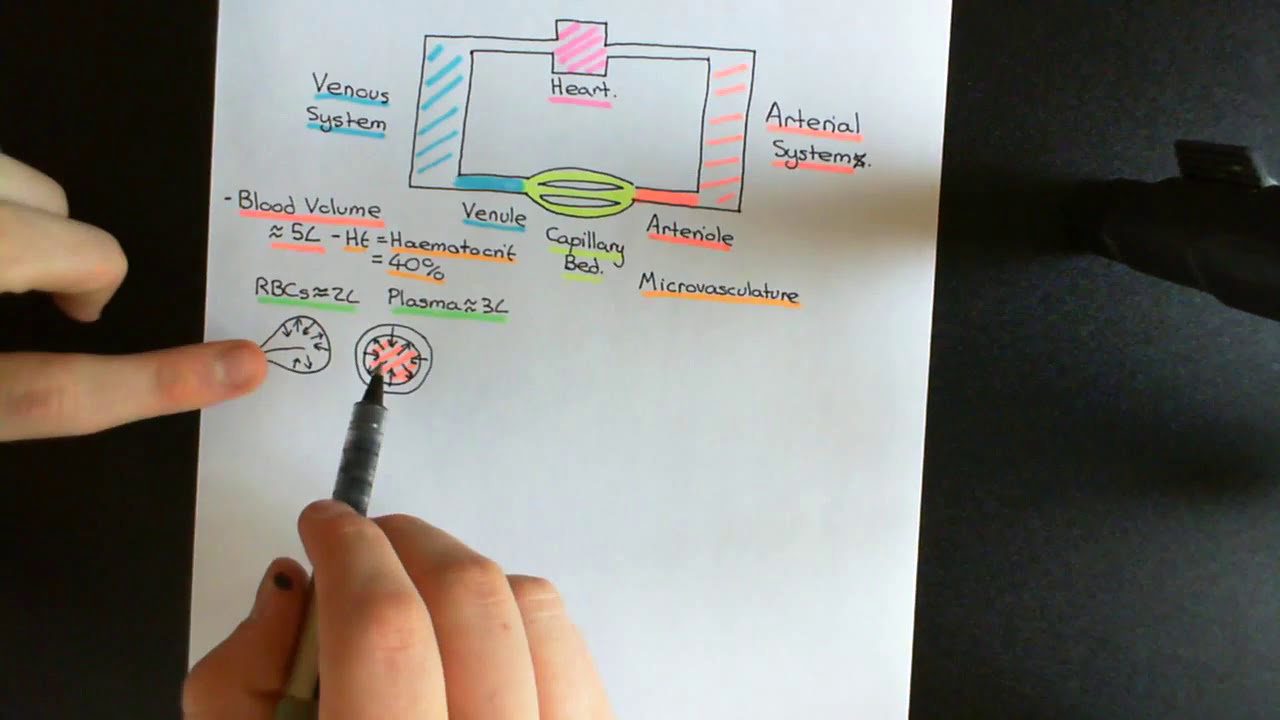 Heart.
Venous
System
Arterial
Systems.
- Blood Volume
≈ 5L - Ht = Haematocrit
= 40%
Venule
Capillary
Bed.
Arteriole
RBCs ≈ 2L Plasma ≈ 3L
Microvasculature